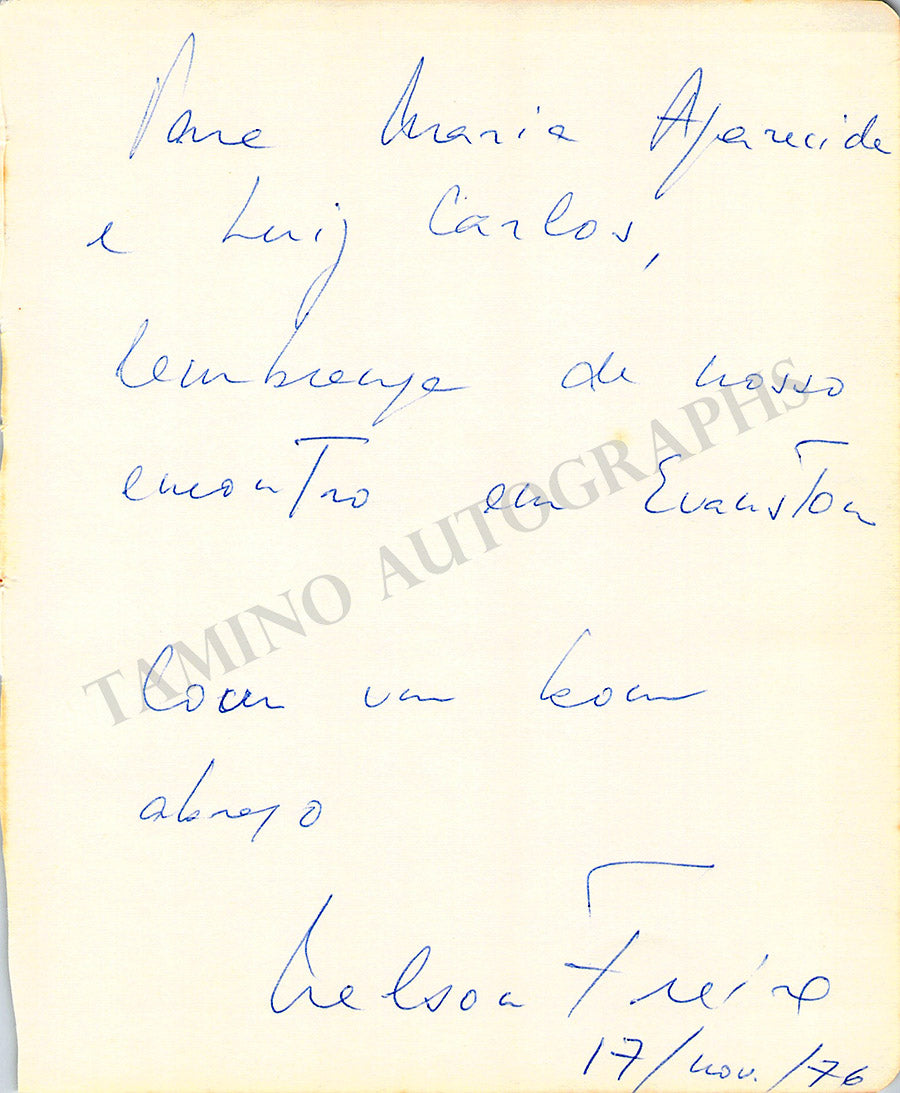 Para Maria Aparecida
e Luiz Carlos,
lembrança de nosso
encontro em Evanston
Com um bom
abraço
Nelson Freire
17/nov./76
TAMINO AUTOGRAPHS